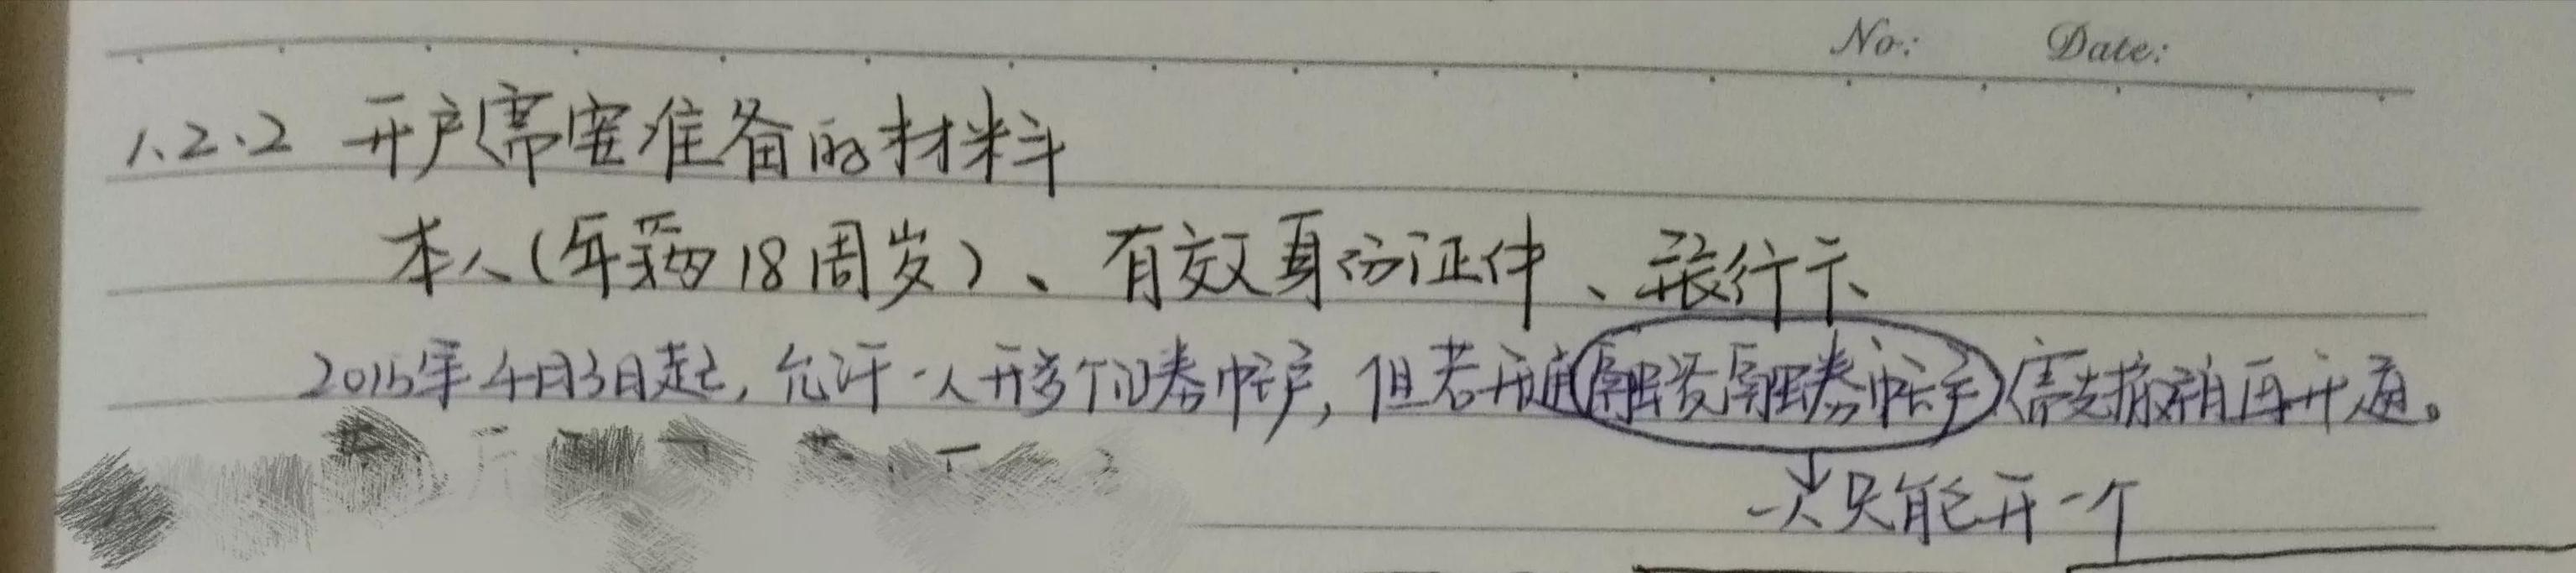 No: Date:
1.2.2 开户需要准备的材料
本人(年满18周岁)、有效身份证件、银行卡
2015年4月13日起,允许一人开多个证券帐户,但若开通融资融券帐户需先撤销再开通。
一人只能开一个